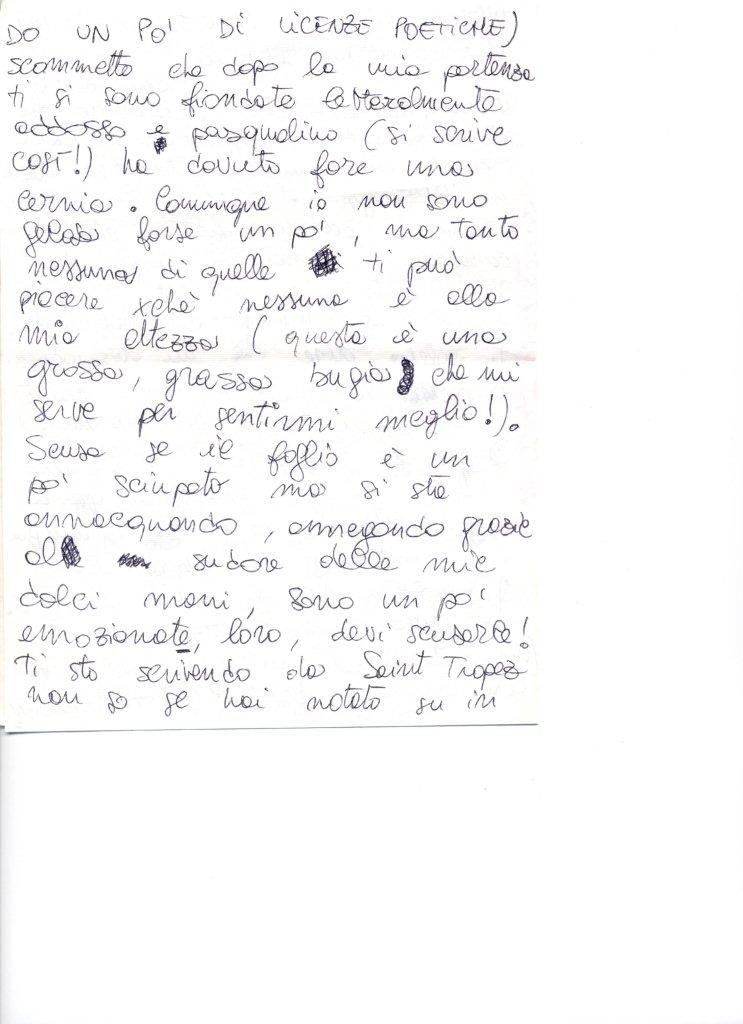 DO UN PO' DI LICENZE POETICHE)
scommetto che dopo la mia partenza
ti si sono fiondate letteralmente
addosso e pasqualino (si scrive
così!) ha dovuto fare una
cernia. Comunque io non sono
gelosa forse un po', ma tanto
nessuna di quelle ti può
piacere xchè nessuna è alla
mia altezza (questa è una
grossa, grassa bugia che mi
serve per sentirmi meglio!).
Scusa se il foglio è un
po' sciupato ma si sta
annacquando, annegando grazie
al sudore delle mie
dolci mani, sono un po'
emozionate, loro, devi scusarle!
Ti sto scrivendo da Saint Tropez
non so se hai notato su in